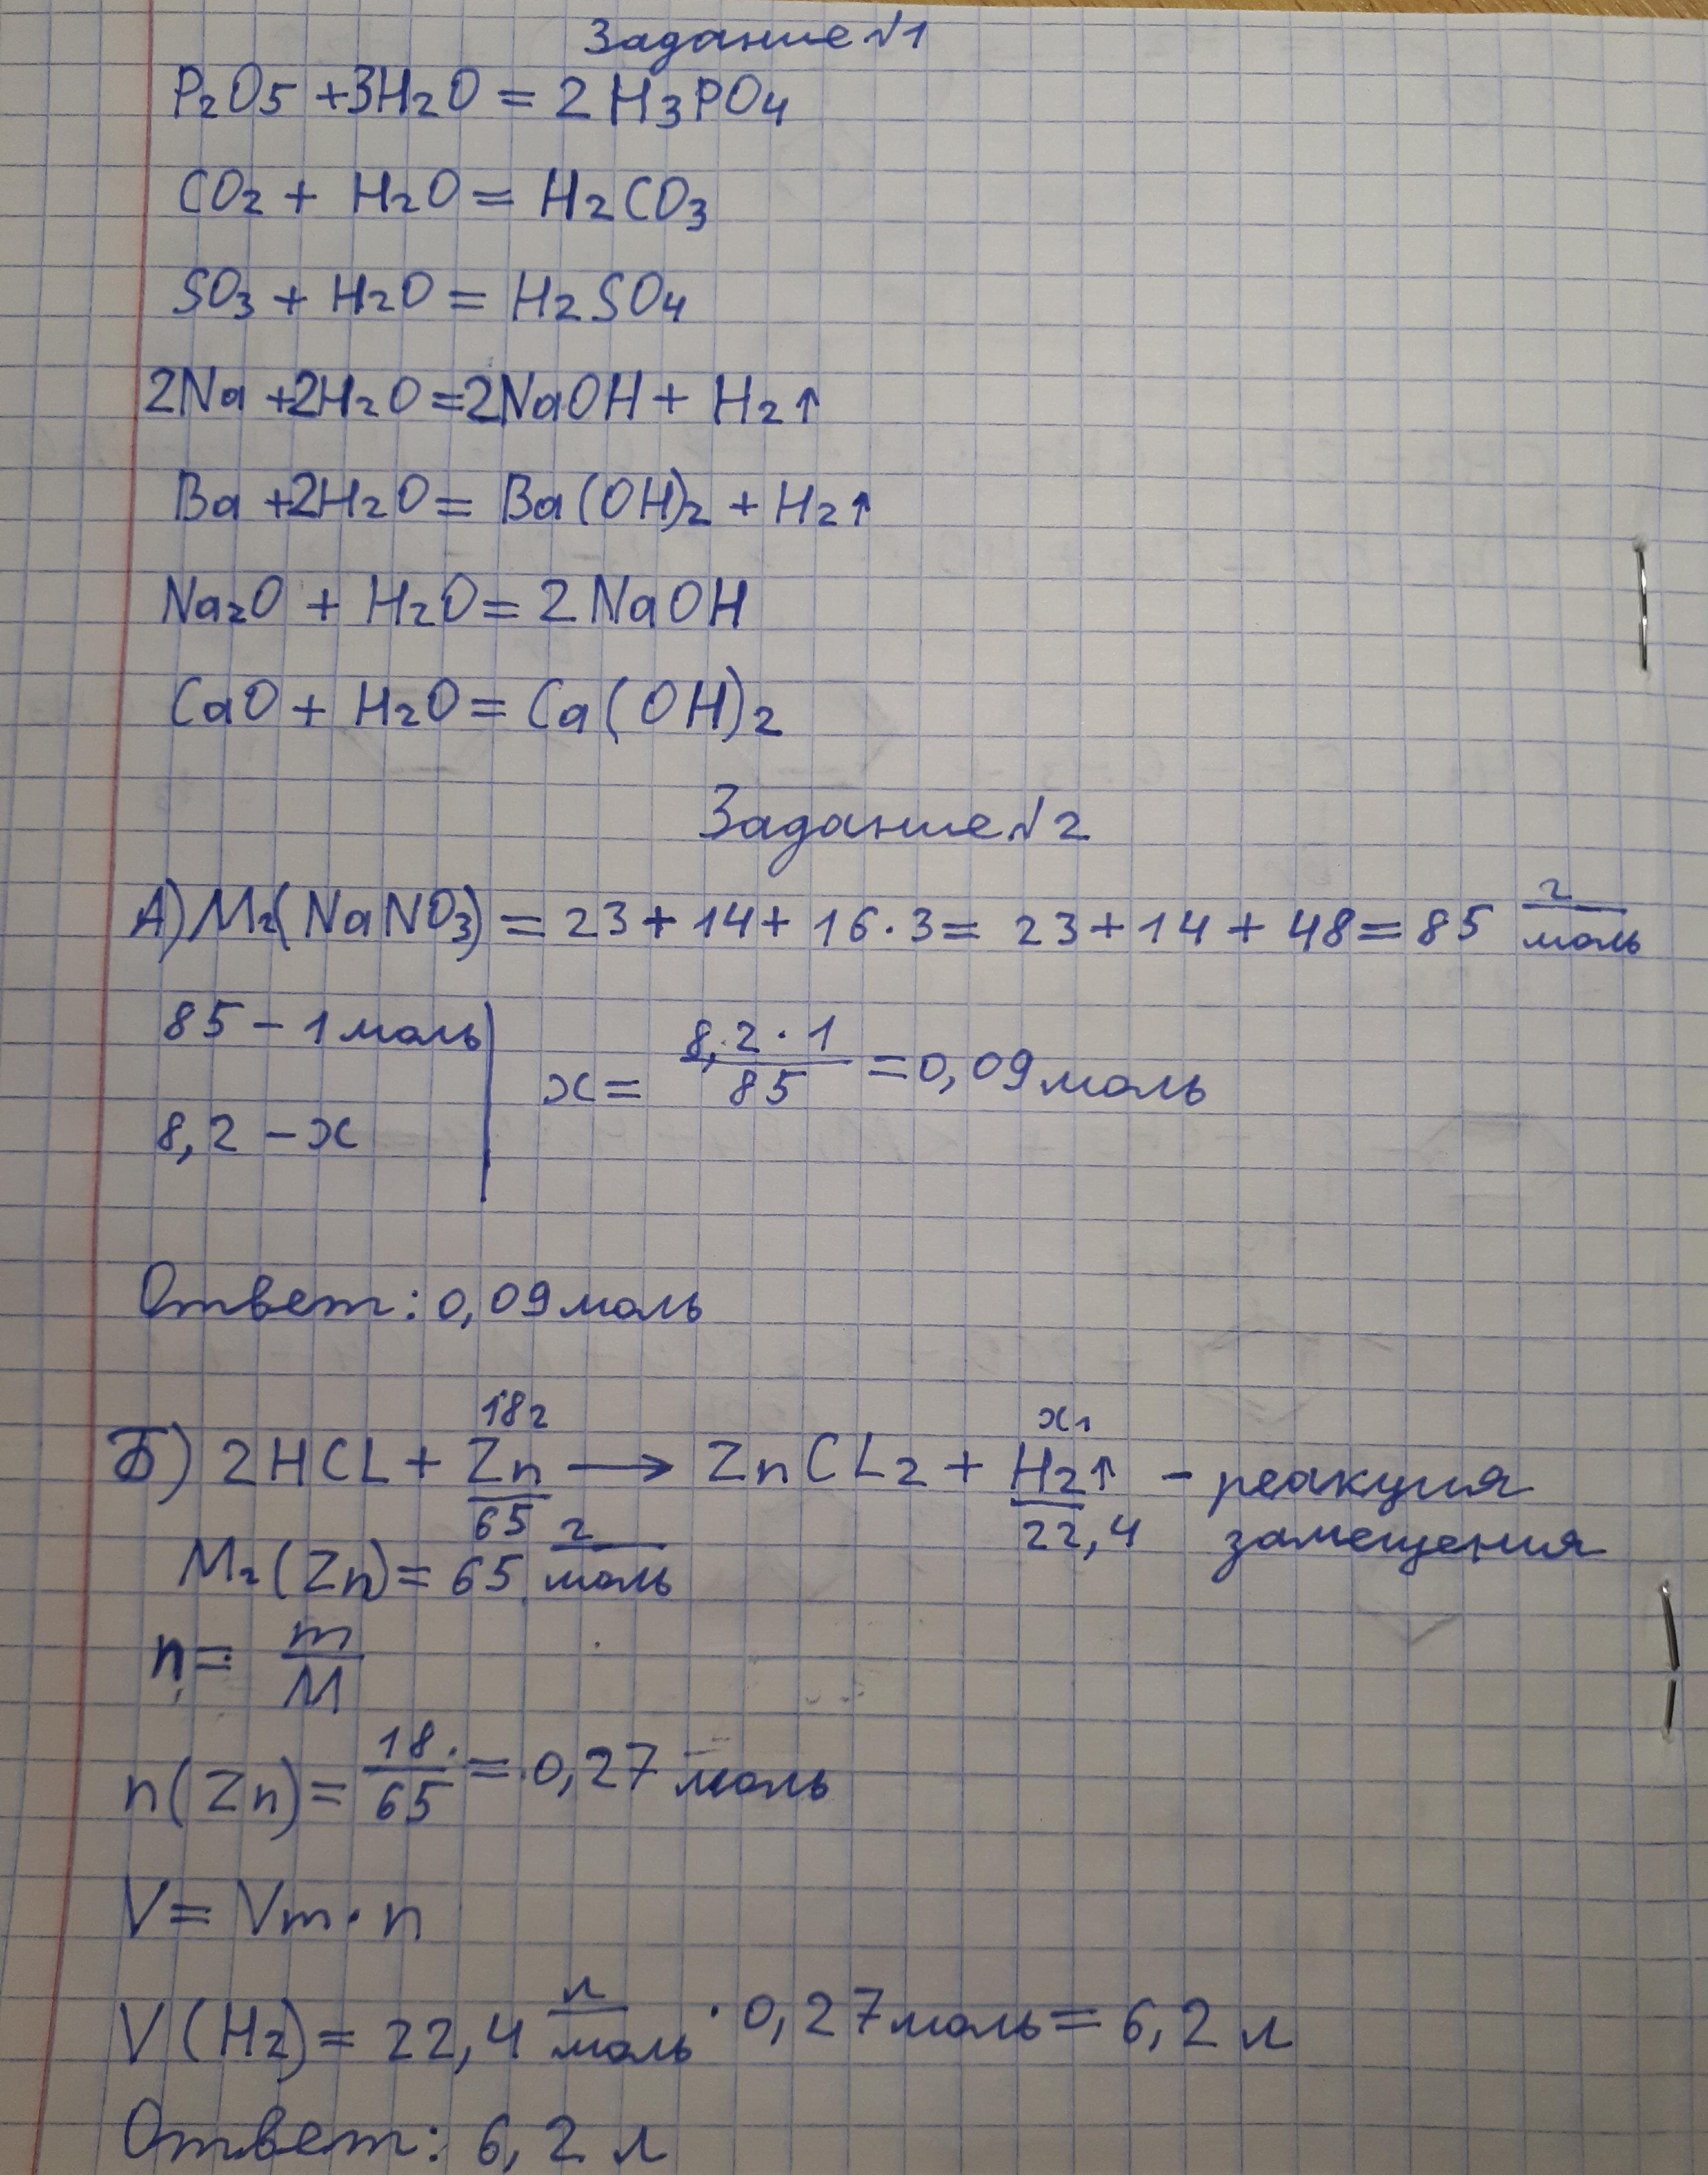 Задание №1
P₂O5 +3H₂O = 2 H₃PO₄
CO₂ + H₂O = H₂CO₃
SO₃ + H₂O = H₂SO₄
2Na +2H₂O =2NaOH + H₂↑
Ba +2H₂O = Ba(OH)₂ + H₂↑
Na₂O + H₂O = 2 NaOH
CaO + H₂O = Ca(OH)₂
Задание №2
А) Mг(NaNO₃) = 23 + 14 + 16·3 = 23 + 14 + 48 = 85 г/моль
85 – 1 моль
8,2 – x
x = 8,2·1/85 = 0,09 моль
Ответ: 0,09 моль
18г x₁
Б) 2HCL + Zn → ZnCL₂ + H₂↑ – реакция
65 22,4 замещения
Mг(Zn) = 65 г/моль
n = m/M
n(Zn) = 18/65 = 0,27 моль
V = Vm·n
V(H₂) = 22,4 л/моль · 0,27 моль = 6,2 л
Ответ: 6,2 л